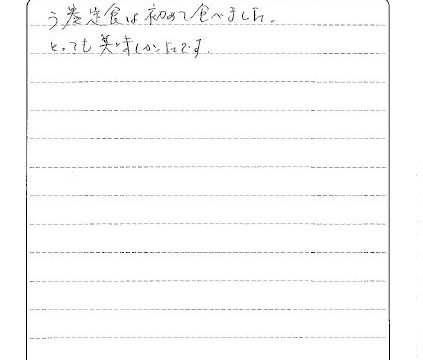 う巻定食は初めて食べました。
とっても美味しかったです。